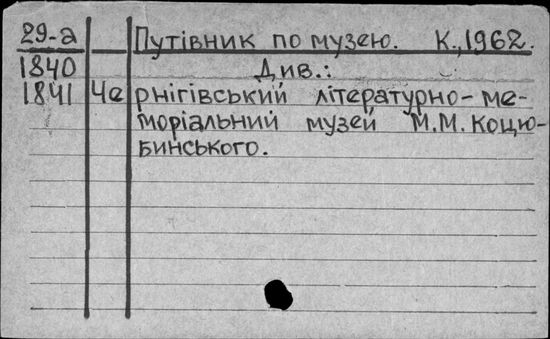 29-а Путівник по музею. К., 1962.
1840 Див.:
1841 Чернігівський літературно-ме-
моріальний музей М.М. Коцю-
бинського.